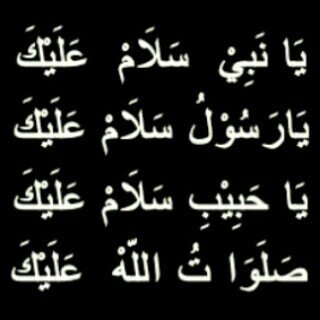 يَا نَبِيْ سَلَامْ عَلَيْكَ
يَارَسُوْلُ سَلَامْ عَلَيْكَ
يَا حَبِيْبِ سَلَامْ عَلَيْكَ
صَلَوَا تُ اللّهْ عَلَيْكَ